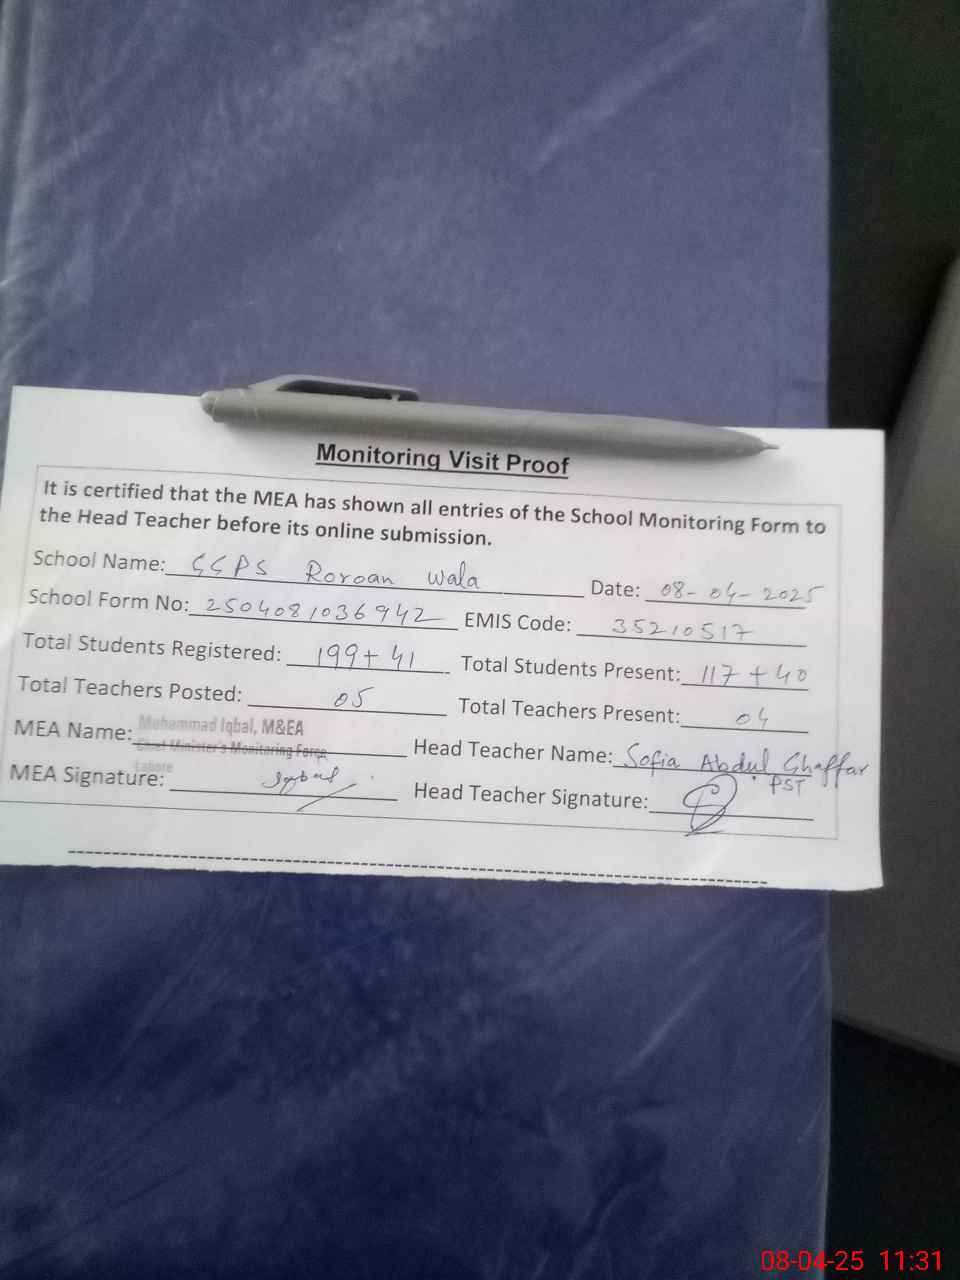 Monitoring Visit Proof
It is certified that the MEA has shown all entries of the School Monitoring Form to
the Head Teacher before its online submission.
School Name: GGPS Roroan Wala Date: 08-04-2025
School Form No: 2504081036942 EMIS Code: 35210517
Total Students Registered: 199+41 Total Students Present: 117+40
Total Teachers Posted: 05 Total Teachers Present: 04
MEA Name: Muhammad Iqbal, M&EA Head Teacher Name: Sofia Abdul Ghaffar
Chief Minister's Monitoring Force
Lahore
PST
MEA Signature: Iqbal Head Teacher Signature:
08-04-25 11:31